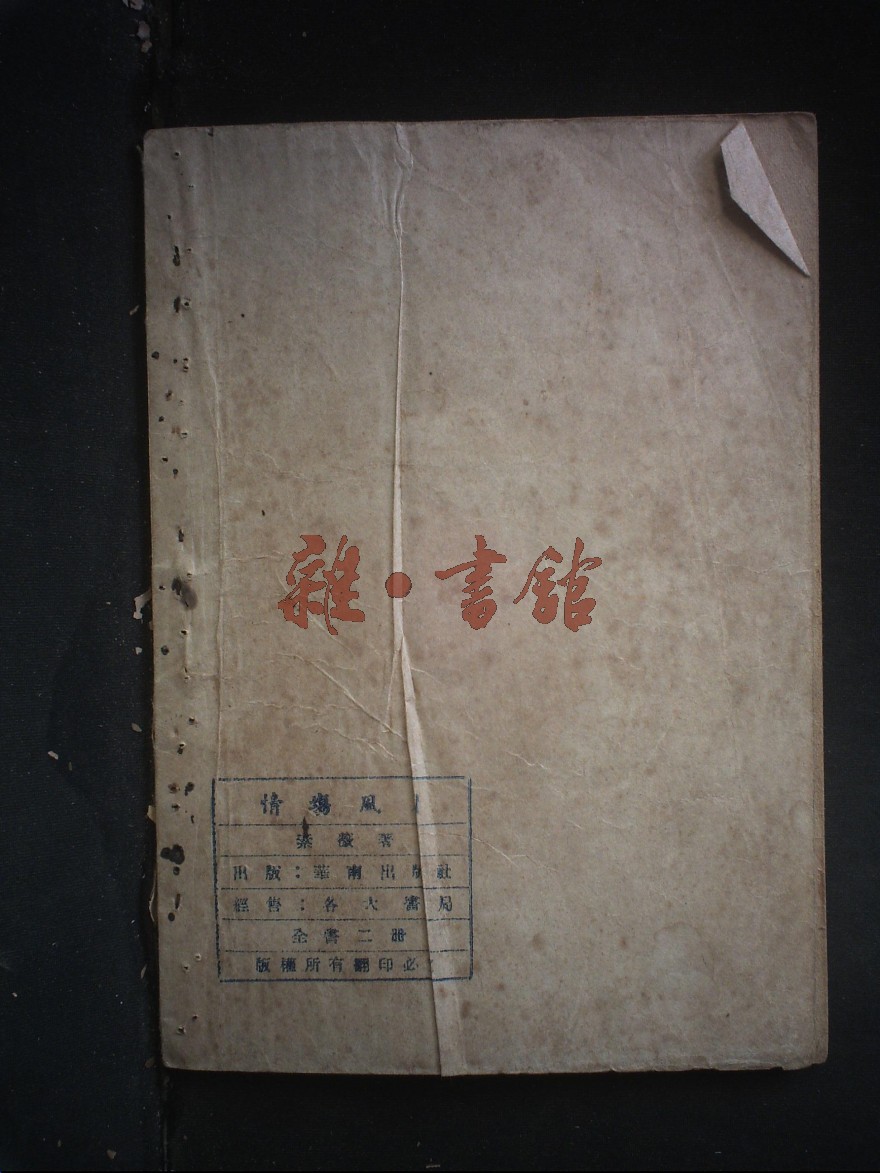 雜·書舘
情場風
紫薇著
出版：華南出版社
經售：各大書局
全書二冊
版權所有翻印必